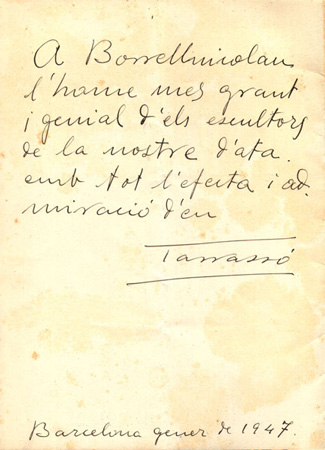 A Borrellnicolau
l'home mes grant
i genial d'els escultors
de la nostre d'ata.
emb tot l'efecta i ad
miració d'en
Tarrassó
Barcelona gener de 1947.